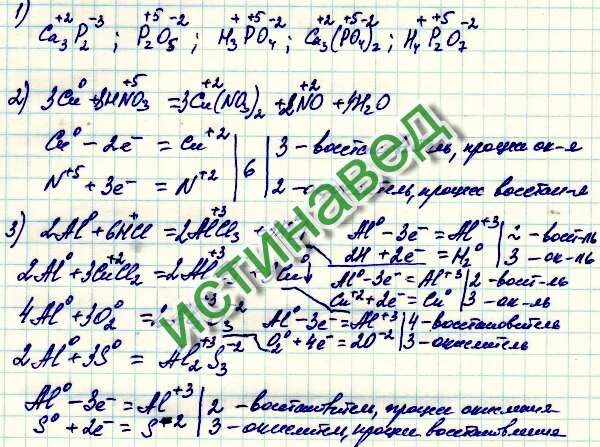 1) Ca₃⁺²P₂⁻³ ; P₂⁺⁵O₅⁻² ; H₃⁺P⁺⁵O₄⁻² ; Ca₃⁺²(P⁺⁵O₄⁻²)₂ ; H₄⁺P₂⁺⁵O₇⁻²
2) 3Cu⁰ + 8HN⁺⁵O₃ = 3Cu⁺²(NO₃)₂ + 2N⁺²O + 4H₂O
Cu⁰ - 2e⁻ = Cu⁺² | 6 | 3 - процесс ок-я
N⁺⁵ + 3e⁻ = N⁺² | 2 - процесс восстан-я
3) 2Al⁰ + 6H⁺Cl = 2Al⁺³Cl₃ +
Al⁰ - 3e⁻ = Al⁺³ | 2 - восст-ль
2H + 2e⁻ = H₂⁰ | 3 - ок-ль
2Al⁰ + 3Cu⁺²Cl₂ = 2Al⁺³ Cu⁰↓
Al⁰ - 3e⁻ = Al⁺³ | 2 - восст-ль
Cu⁺² + 2e⁻ = Cu⁰ | 3 - ок-ль
4Al⁰ + 3O₂⁰ = ⁺³ ⁻² ₃
Al⁰ - 3e⁻ = Al⁺³ | 4 - восстановитель
O₂⁰ + 4e⁻ = 2O⁻² | 3 - окислитель
2Al⁰ + 3S⁰ = Al₂⁺³S₃⁻²
Al⁰ - 3e⁻ = Al⁺³ | 2 - восстановитель, процесс окисления
S⁰ + 2e⁻ = S⁻² | 3 - окислитель, процесс восстановления
ИСТИНАВЕД